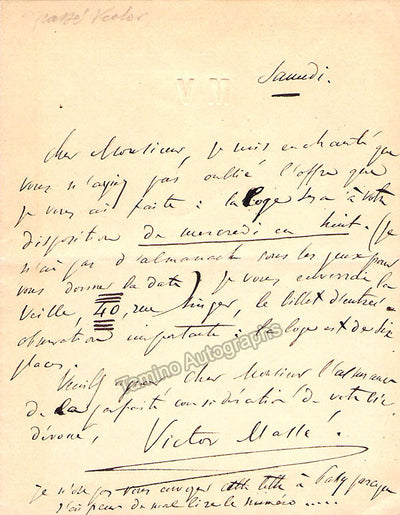 Massé Victor
V M
Samedi.
Cher Monsieur, je suis enchanté que
vous n'ayiez pas oublié l'offre que
je vous ai faite : la loge sera à votre
disposition du mercredi en huit. (je
n'ai pas d'almanach sous les yeux pour
vous donner la date) je vous enverrai la
veille, 40, rue Singer, le billet d'entrée -
observation importante : la loge est de six
places.
Veuillez agréer, cher Monsieur l'assurance
de la parfaite considération de votre bien
dévoué,
Victor Massé.
Tamino Autographs
je n'ose pas vous envoyer cette lettre à Passy parceque
j'ai peur de mal lire le numéro .....